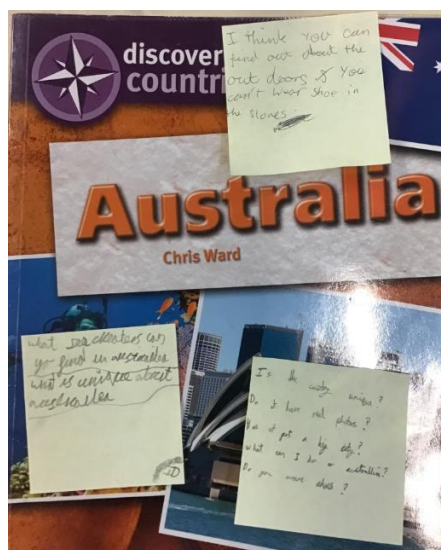 discover
countri
I think you can
find out about the
out doors & you
can't wear shoe in
the stores
Australia
Chris Ward
what sea creaters can
yo find in australia
what is unique about
australia
JD
Is the unique?
Do it have real photos?
Has it got a big city?
What can I do in australia?
Do you wear shoes?